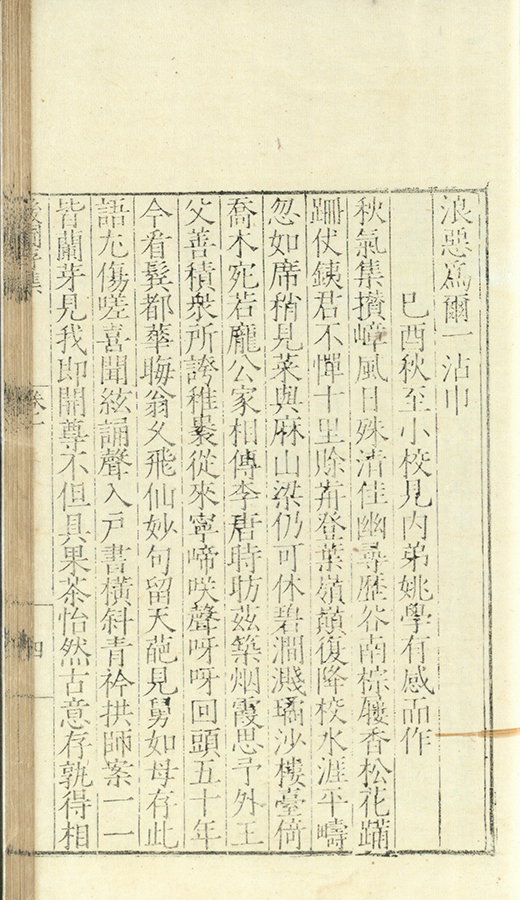 浪惡爲爾一沾巾
己酉秋至小校見內弟姚學有感而作
秋氣集攢嶂風日殊清佳幽尋歷谷南棕鞵香松花蹣
跚仗銕君不憚十里賒荊登葉嶺顛復降校水涯平疇
忽如席稍見菜與麻山梁仍可休碧澗濺璚沙樓臺倚
喬木宛若龐公家相傳李唐時昉茲築烟霞思予外王
父善積衆所誇稚褁從來寧啼咲聲呀呀回頭五十年
今看鬂都華晦翁父飛仙妙句留天葩見舅如母存此
語尤傷嗟喜聞絃誦聲入戸書橫斜青衿拱師案一一
皆蘭芽見我即開尊不但具果茶怡然古意存孰得相
卷一
四